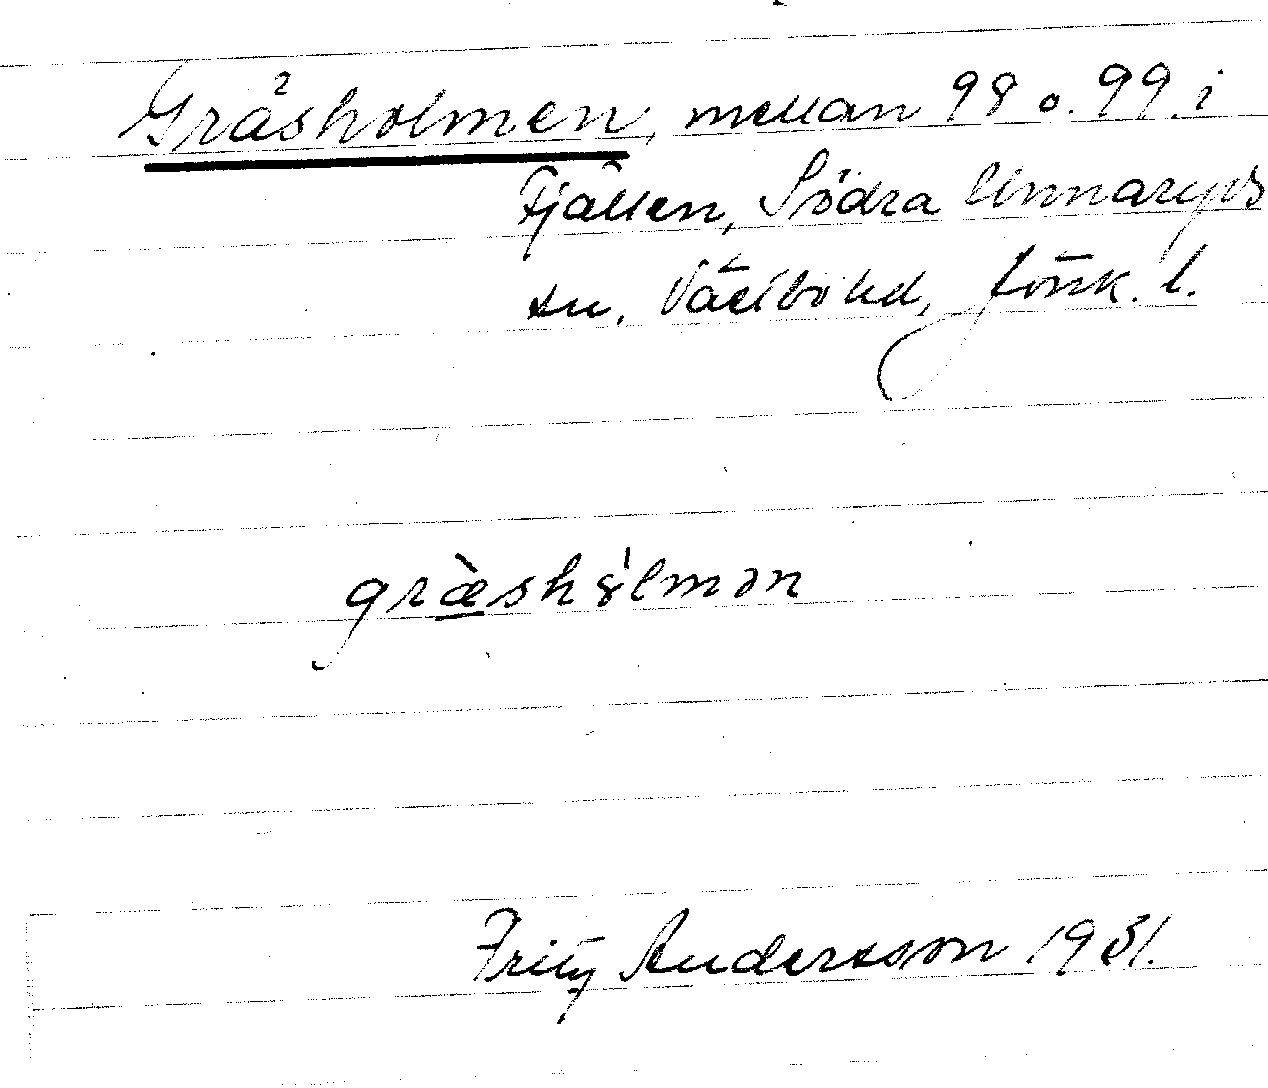 Gräsholmen, mellan 98 o. 99 i
Fjällen, Södra Unnaryds
sn. Västbo hd, Jönk. l.
græ̀shȣ̍lmən
Fritz Andersson 1931.